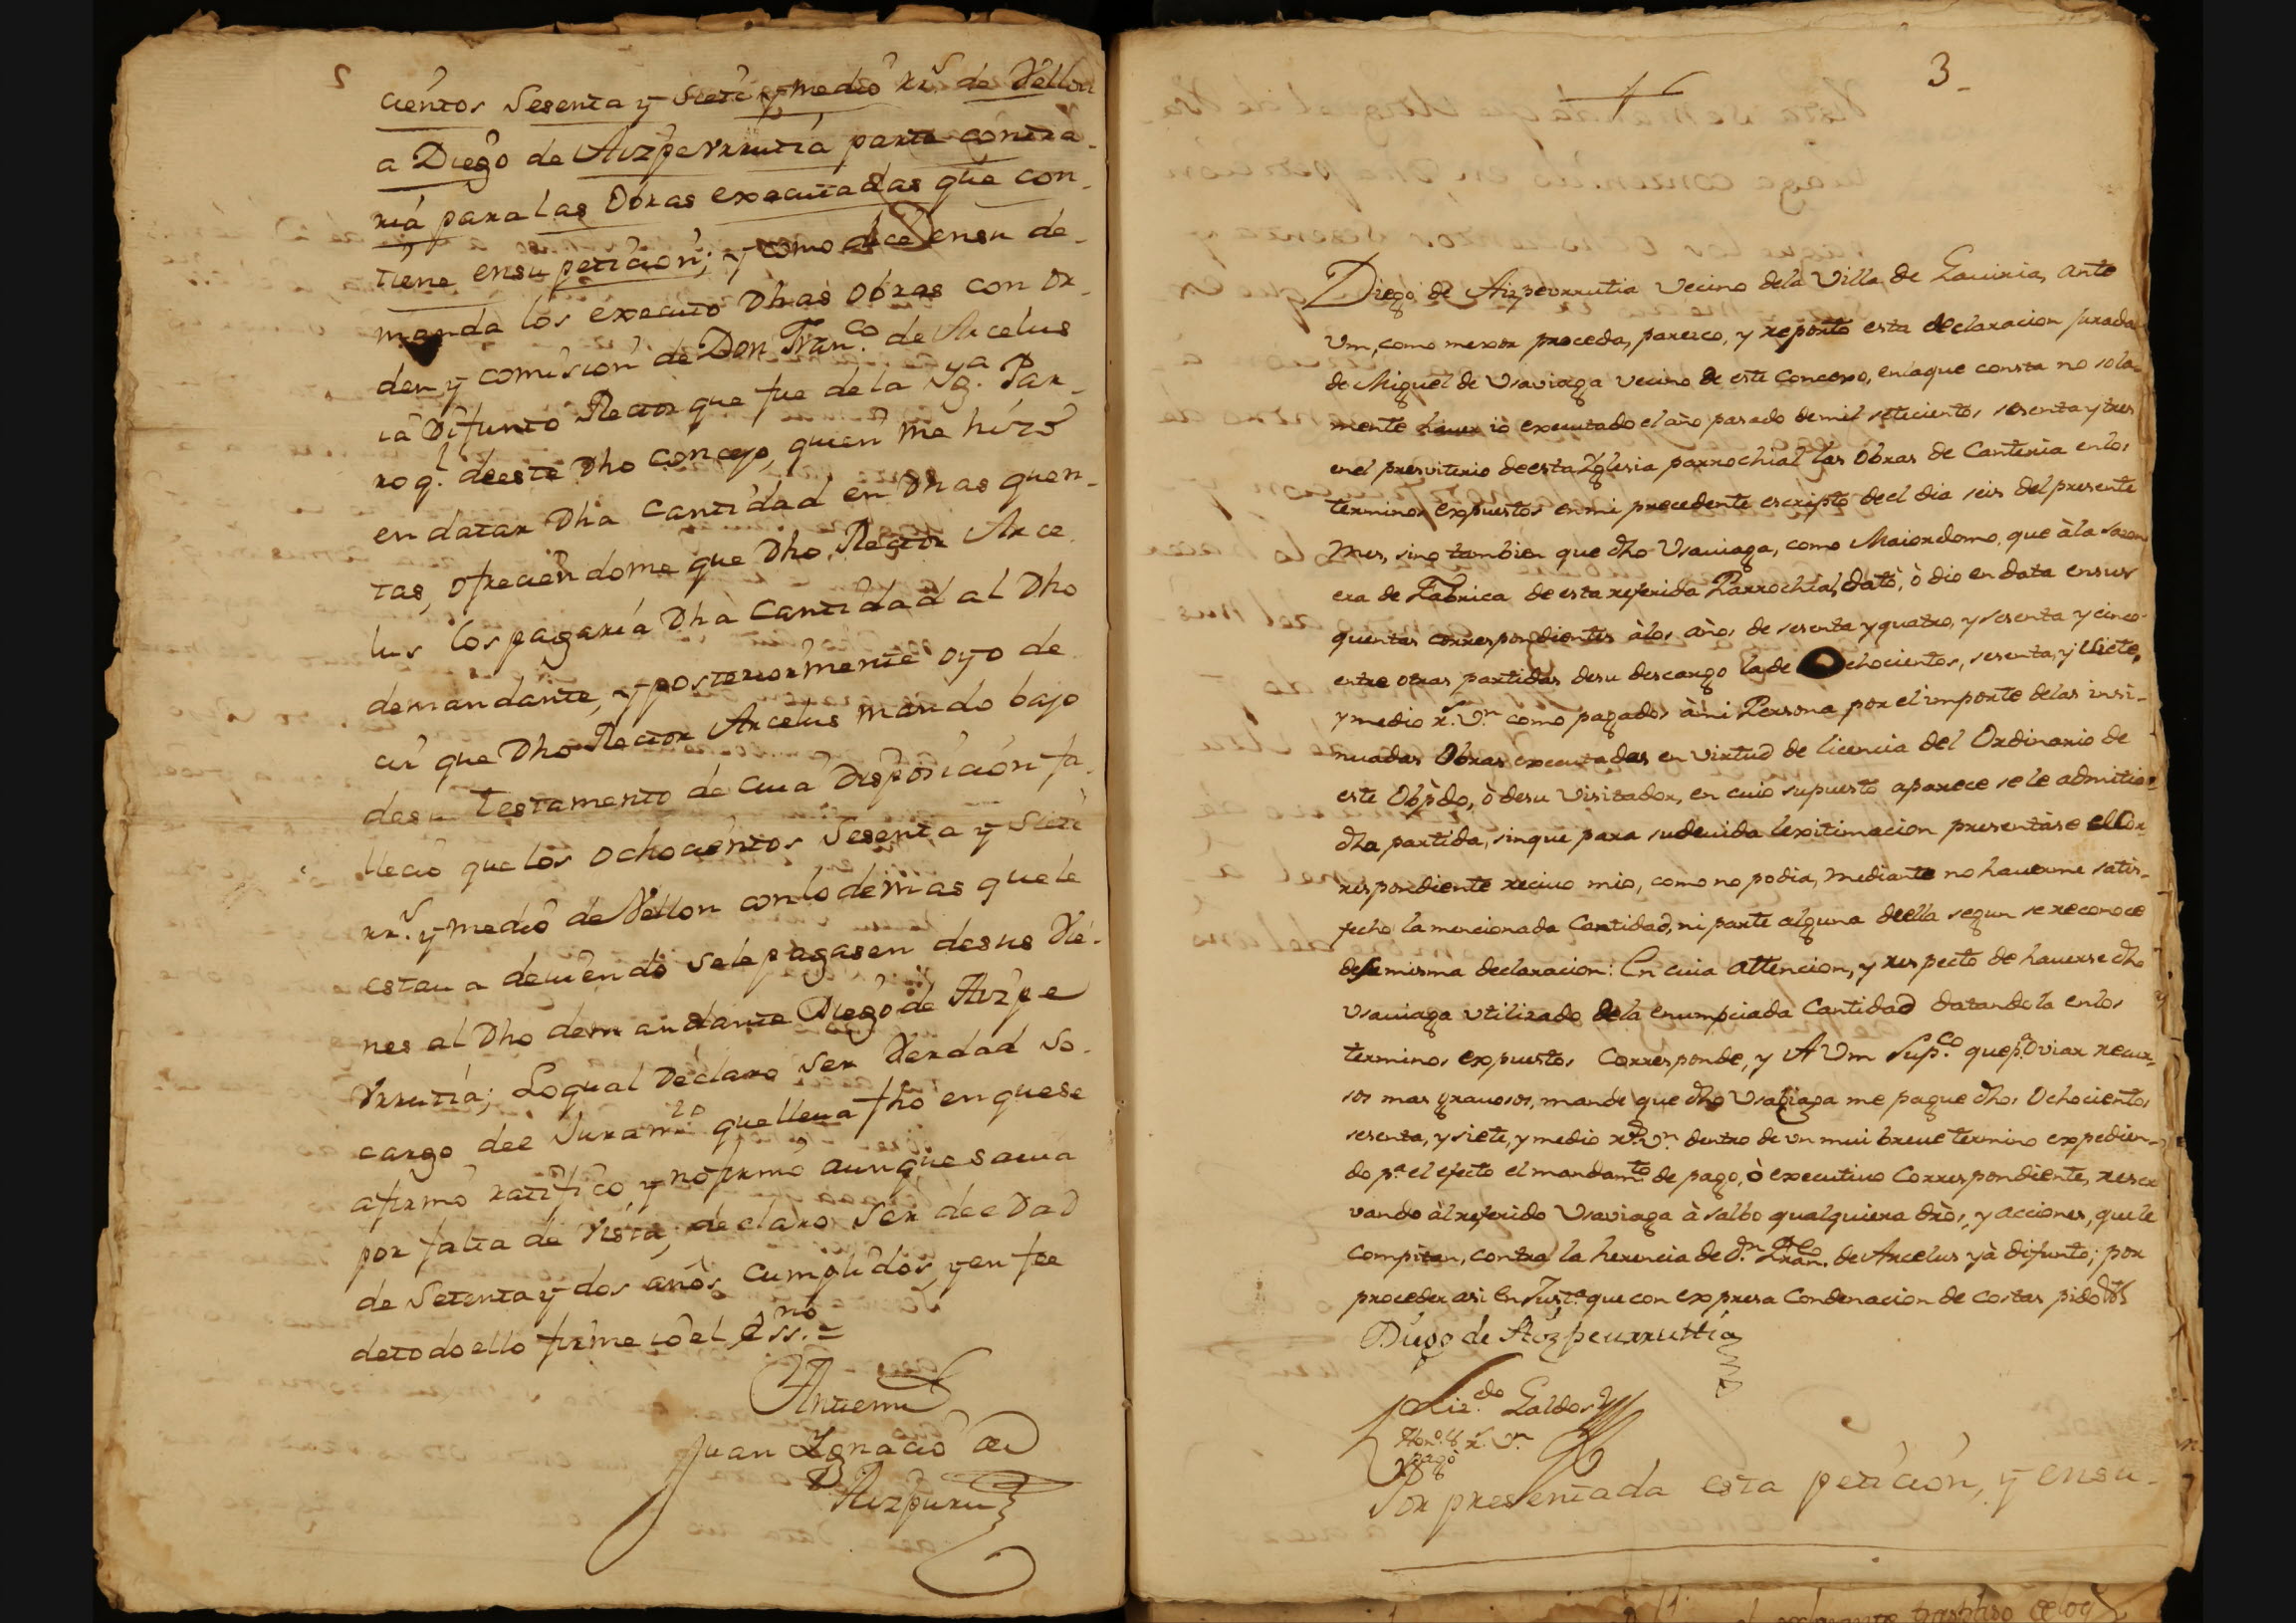 2
cientos Sesenta y Siete y medio rr.s de Vellon
a Diego de Aizpevrrutia parte contra-
ria para las Obras executadas que con-
tiene en su peticion; y como dice en su de-
manda los executo Dhas Obras con or-
den y comision de Don Fran.co de Arcelus
ia Difunto Rector que fue de la Yg.a Par-
roq.l de este Dho concejo, quien me hizo
en datar Dha Cantidad en Dhas quen-
tas, ofreciendome que Dho Rector Arce-
lus los pagaria Dha Cantidad al Dho
demandante, y posteriormente oyo de
cir que Dho Rector Arcelus mando bajo
de su Testamento de cuia Disposicion fa-
llecio que los ochocientos Sesenta y Siete
rr.s y medio de Vellon con lo demas que le
estau a deuiendo se le pagasen de sus Vie-
nes al Dho demandante Diego de Aizpe
Vrrutia; Lo qual Declaro Ser Verdad So-
cargo del Juram.to que lleua fho en que se
afirmo ratifico, y no firmo aunque saeua
por falta de Vista, declaro Ser de eDad
de Setenta y dos años cumplidos, y en fee
de todo ello firme io el Ess.no =
Antemi
Juan Ygnacio de
Aizpuru
3
Diego de Aizpeurrutia Vecino de la Villa de Gauiria, ante
Vm, como mexor proceda, parezco, y reporto esta declaracion jurada
de Miguel de Vsaviaga vecino de este Concexo, en la que consta no sola-
mente hauer io executado el año pasado de mil setecientos sesenta y tres
en el presviterio de esta Yglesia parrochial las Obras de Canteria en los
terminos expuestos en mi precedente escripto de el dia seis del presente
Mes, sino tambien que dho Vsauiaga, como Maiordomo, que à la sazon
era de Fabrica de esta referida Parrochial, datò, ò dio en data en sus
quentas correspondientes à los años de sesenta y quatro, y sesenta y cinco
entre otras partidas de su descargo la de Ochocientos, sesenta, y siete,
y medio r.s V.n como pagados à mi Persona por el importe de las insi-
nuadas Obras executadas en virtud de licencia del Ordinario de
este Obpdo, ò de su Visitador, en cuio supuesto aparece se le admitio
dha partida, sin que para su deuida lexitimacion presentàse el Cor-
respondiente reciuo mio, como no podia, mediante no hauerme satis-
fecho la mencionada Cantidad, ni parte alguna de ella segun se reconoce
de su misma declaracion: En cuia attencion, y respecto de hauerse dho
Vsauiaga vtilizado de la enumpciada Cantidad datandola en los
terminos expuestos Corresponde, y A Vm Sup.co que p.a oviar recur-
sos mas grauosos, mande que dho Vsabiaga me pague dhos Ochocientos
sesenta, y siete, y medio r.s V.n dentro de vn mui breue termino expedien-
do p.a el efecto el mandam.to de pago, ò executiuo Correspondiente, reser-
vando àl referido Vsaviaga à salbo qualquiera dròs, y acciones, que le
compitan, contra la herencia de d.n Fran.co de Arcelus yà difunto; por
proceder asi en Just.a que con expresa Condenacion de costas pido &
Diego de Aizpeurruttia
Liz.do Galdos
Hon.s 8 r.s V.n
pagò
Por presentada esta peticion, y en su-